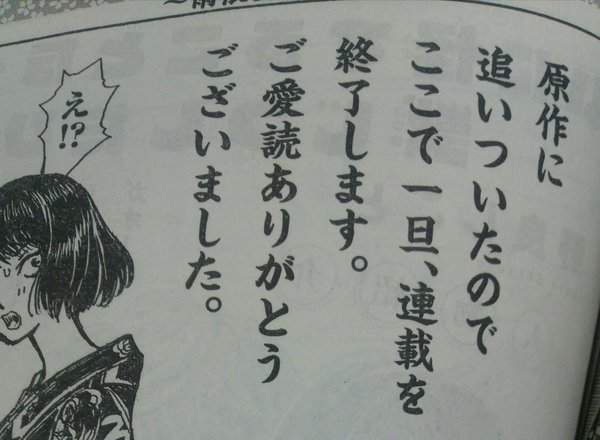 原作に
追いついたので
ここで一旦、連載を
終了します。
ご愛読ありがとう
ございました。
え!?